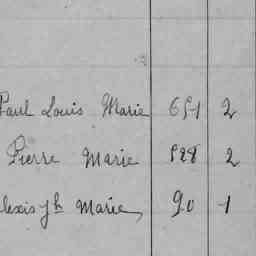 Paul Louis Marie 651 2
Pierre Marie 528 2
lexis Jh Marie 90 1